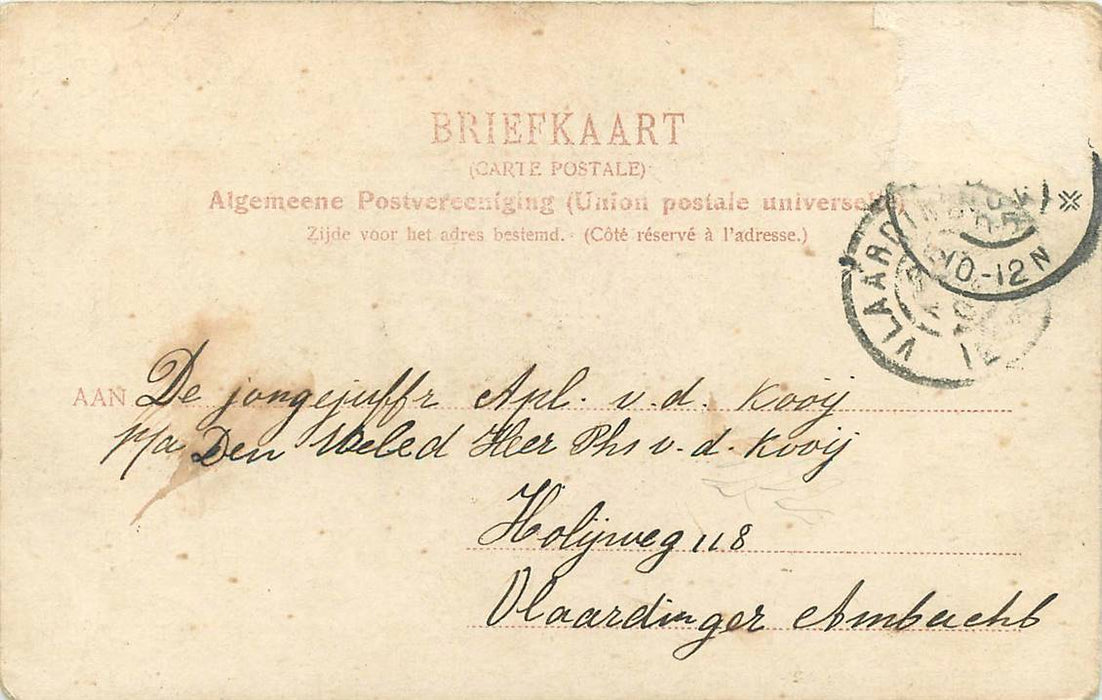 BRIEFKAART
(CARTE POSTALE)
Algemeene Postvereeniging (Union postale universelle)
Zijde voor het adres bestemd. - (Côté réservé à l'adresse.)
VLAARDIN
10-12 N
AAN De jongejuffr Apl. v. d. Kooij
p/a Den Weled Heer Phs v. d. Kooij
Holijweg 118
Vlaardinger Ambacht